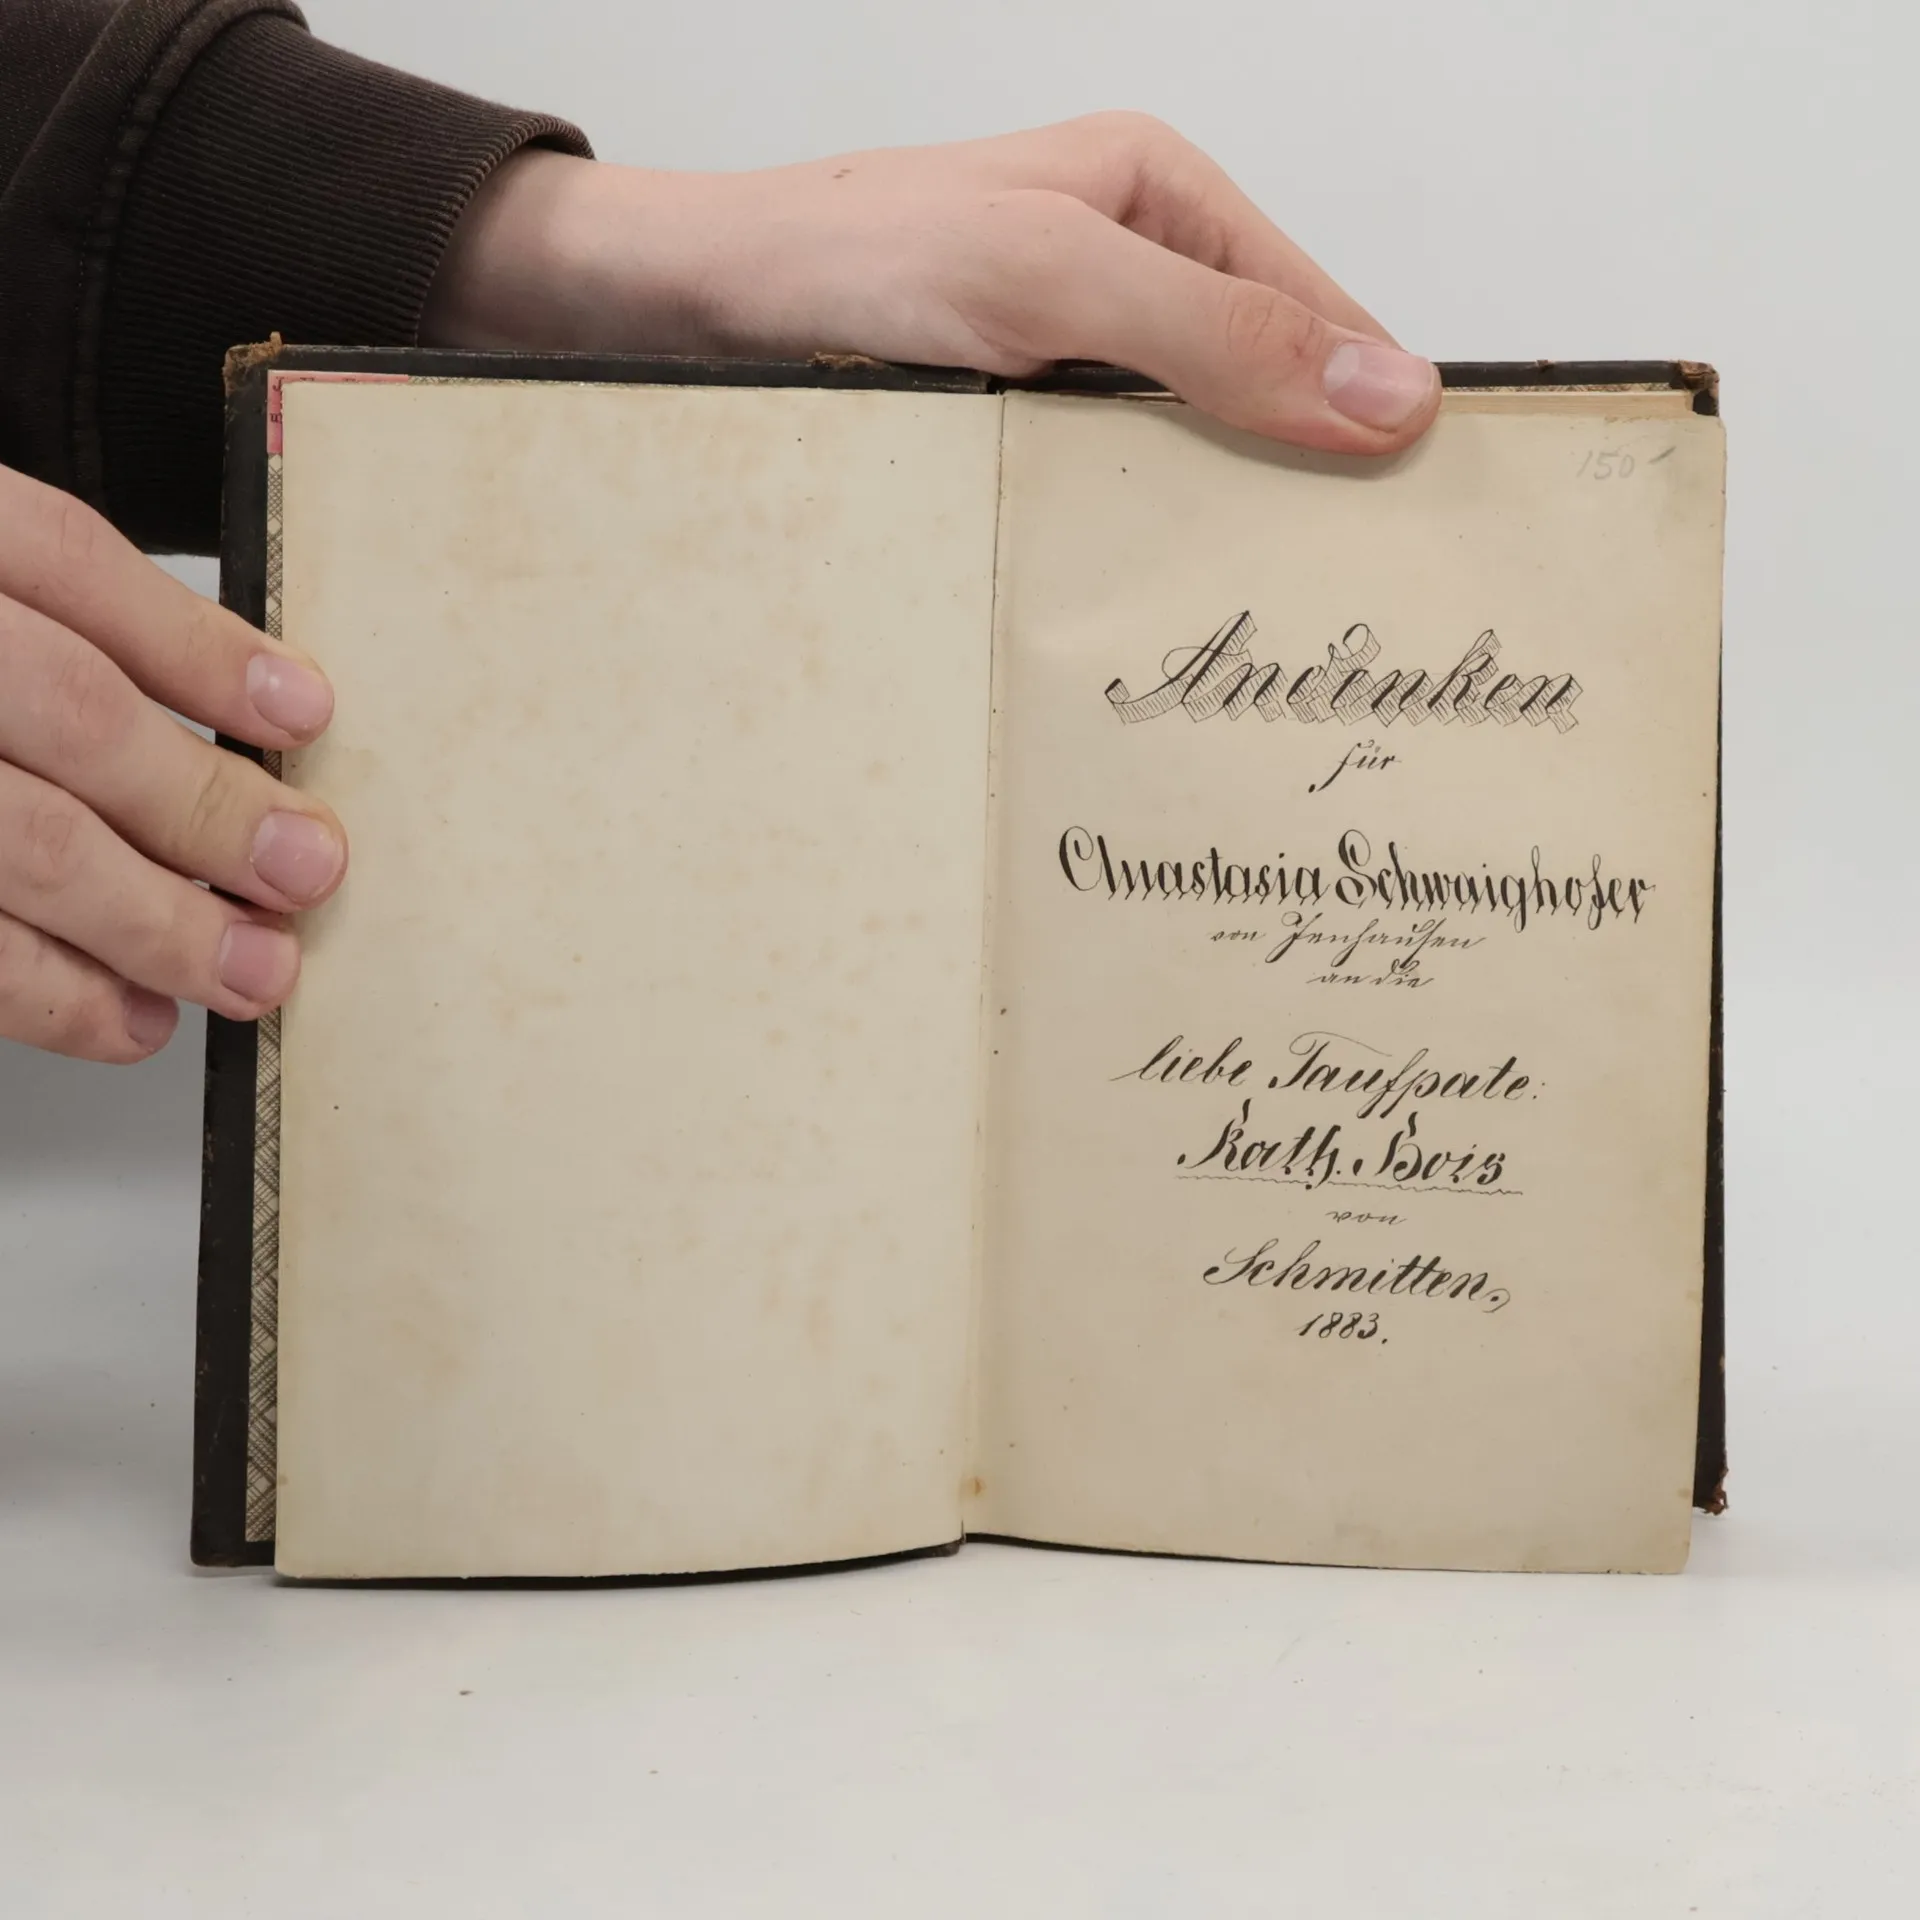 150
Andenken
für
Anastasia Schwaighofer
von Ichenhausen
an die
liebe Taufpate:
Kath. Bois
von
Schmitten.
1883.